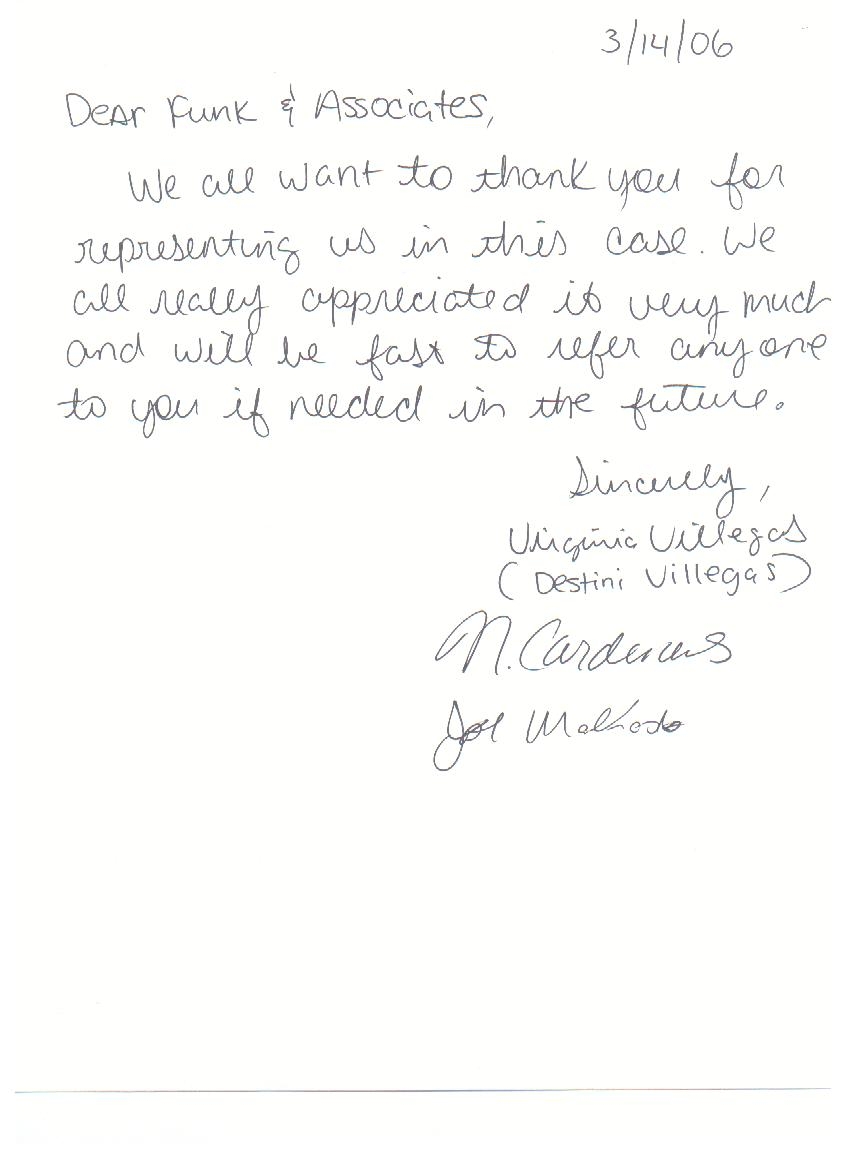 3/14/06
Dear Funk & Associates,
We all want to thank you for
representing us in this case. We
all really appreciated it very much
and will be fast to refer anyone
to you if needed in the future.
Sincerely,
Virginia Villegas
(Destini Villegas)
N. Cardenas
Joe